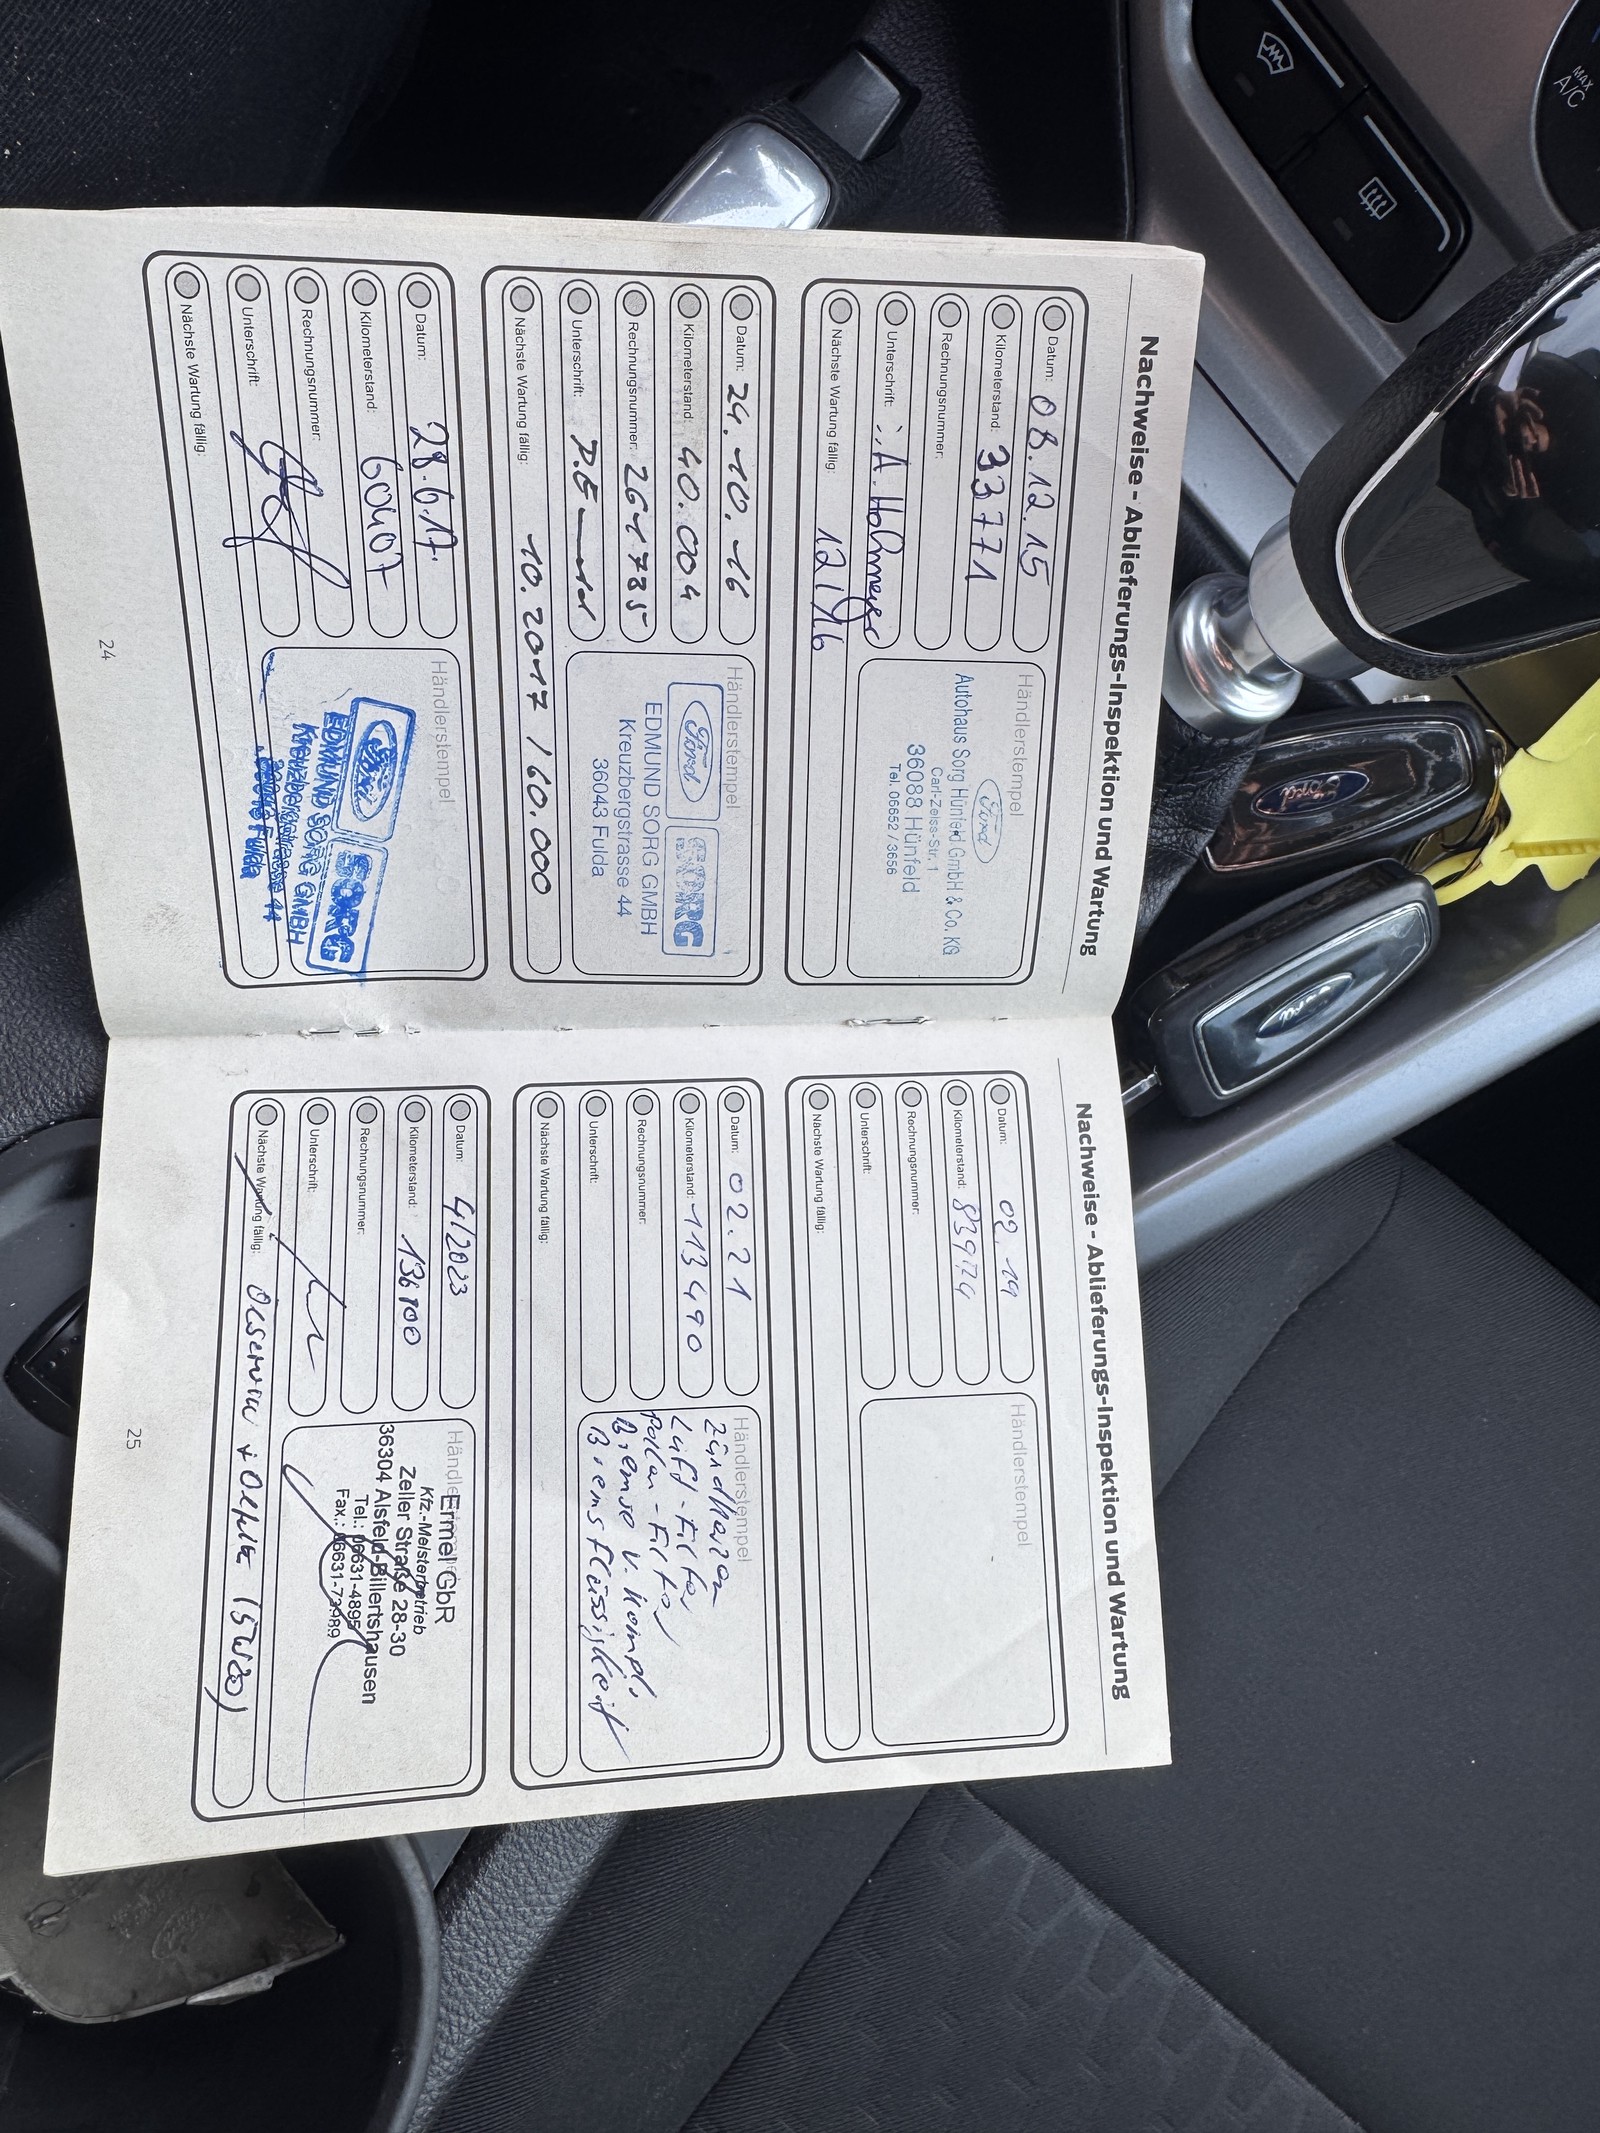 Nachweise - Ablieferungs-Inspektion und Wartung
Datum: 08.12.15
Kilometerstand: 33771
Rechnungsnummer:
Unterschrift: i.A.
Nächste Wartung fällig: 12/16
Händlerstempel
Ford
Autohaus Sorg Hünfeld GmbH & Co. KG
Carl-Zeiss-Str. 1
36088 Hünfeld
Tel. 06652 / 3656
Datum: 24.10.16
Kilometerstand: 40.004
Rechnungsnummer: 2611735
Unterschrift:
Nächste Wartung fällig: 10.2017 / 60.000
Händlerstempel
Ford SORG
EDMUND SORG GMBH
Kreuzbergstrasse 44
36043 Fulda
Datum: 28.6.17.
Kilometerstand: 60407
Rechnungsnummer:
Unterschrift:
Nächste Wartung fällig:
Händlerstempel
Ford SORG
EDMUND SORG GMBH
Kreuzbergstrasse 44
36043 Fulda
24
Nachweise - Ablieferungs-Inspektion und Wartung
Datum: 02.19
Kilometerstand: 83974
Rechnungsnummer:
Unterschrift:
Nächste Wartung fällig:
Händlerstempel
Datum: 02.21
Kilometerstand: 113490
Rechnungsnummer:
Unterschrift:
Nächste Wartung fällig:
Händlerstempel
Zündkerzen
Luft-Filter
Pollen-Filter
Bremse v. kompl.
Bremsflüssigkeit
Datum: 4/2023
Kilometerstand: 136700
Rechnungsnummer:
Unterschrift:
Nächste Wartung fällig: Ölservice + Oelfilter (5W20)
Händlerstempel
Ermel GbR
Kfz.-Meisterbetrieb
Zeller Straße 28-30
36304 Alsfeld-Billertshausen
Tel.: 06631-4895
Fax.: 06631-73989
25
MAX
A/C
Ford
Ford